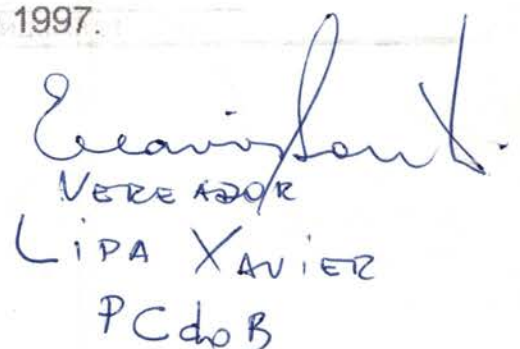 1997.
VEREADOR
LiPA XAViER
PCdoB